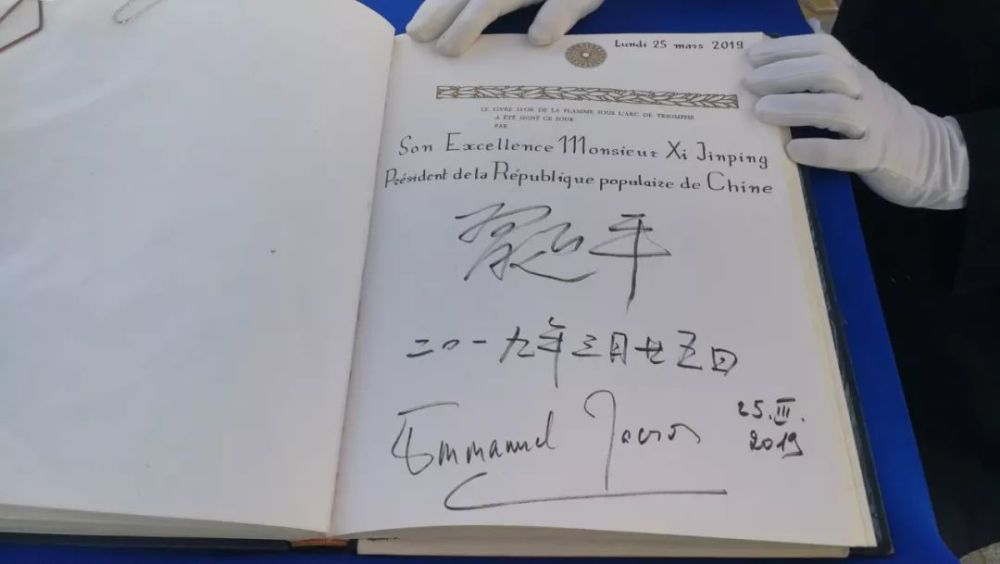 Lundi 25 mars 2019
LE LIVRE D'OR DE LA FLAMME SOUS L'ARC DE TRIOMPHE
A ÉTÉ SIGNÉ CE JOUR
PAR
Son Excellence Monsieur Xi Jinping
Président de la République populaire de Chine
习近平
二〇一九年三月廿五日
Emmanuel Macron
25.III.
2019